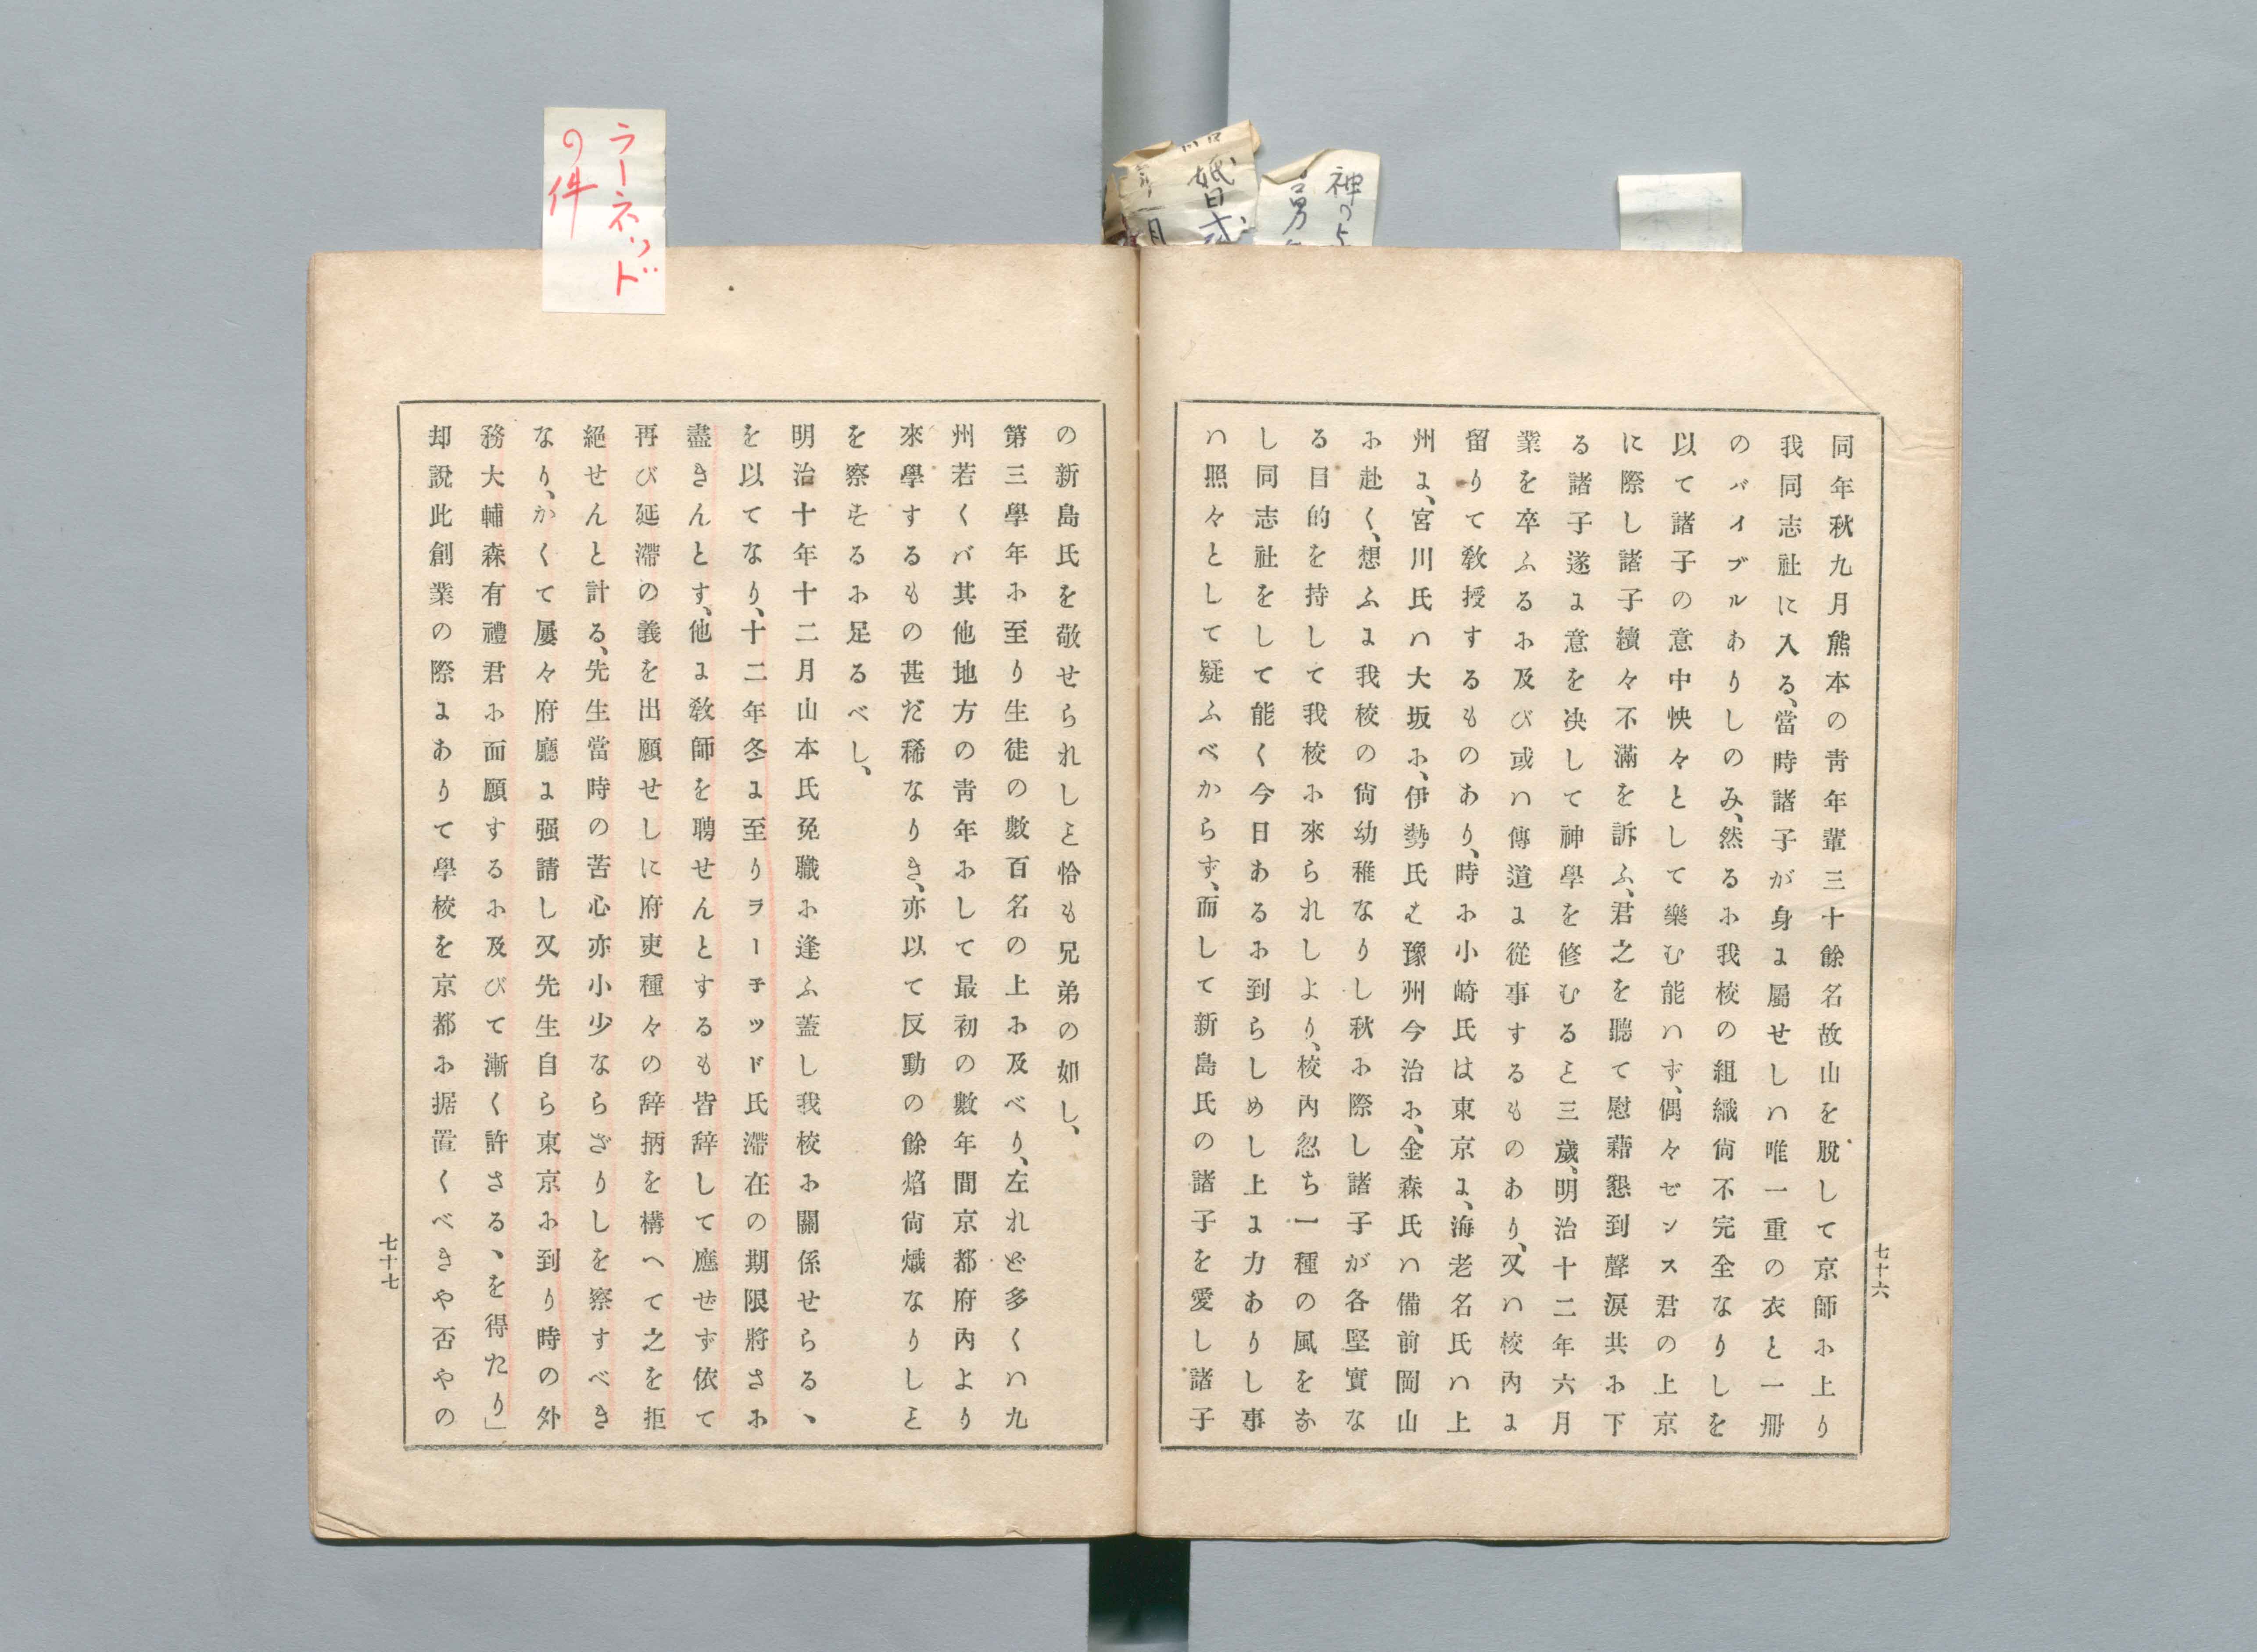 同年秋九月熊本の靑年輩三十餘名故山を脫して京師に上り
我同志社に入る、當時諸子が身に屬せしハ唯一重の衣と一冊
のバイブルありしのみ、然るに我校の組織尙不完全なりしを
以て諸子の意中怏々として樂む能ハず、偶々ゼンス君の上京
に際し諸子續々不滿を訴ふ、君之を聽て慰藉懇到聲淚共に下
る諸子遂に意を决して神學を修むるヿ三歲、明治十二年六月
業を卒ふるに及び或ハ傳道に從事するものあり、又ハ校內に
留りて敎授するものあり、時に小崎氏は東京に、海老名氏ハ上
州に、宮川氏ハ大坂に、伊勢氏も豫州今治に、金森氏ハ備前岡山
に赴く、想ふに我校の尙幼稚なりし秋に際し諸子が各堅實な
る目的を持して我校に來られしより、校內忽ち一種の風をな
し同志社をして能く今日あるに到らしめし上に力ありし事
ハ照々として疑ふべからず、而して新島氏の諸子を愛し諸子
七十六
の新島氏を敬せられしヿ恰も兄弟の如し、
第三學年に至り生徒の數百名の上に及べり、左れど多くハ九
州若くバ其他地方の靑年にして最初の數年間京都府內より
來學するもの甚だ稀なりき、亦以て反動の餘焰尙熾なりしヿ
を察するに足るべし、
明治十年十二月山本氏免職に逢ふ蓋し我校に關係せらるゝ
を以てなり、十二年冬に至りラーチッド氏滯在の期限將さに
盡きんとす、他に敎師を聘せんとするも皆辞して應ぜず依て
再び延滯の義を出願せしに府吏種々の辞柄を構へて之を拒
絕せんと計る、先生當時の苦心亦小少ならざりしを察すべき
なり、かくて屢々府廳に强請し又先生自ら東京に到り時の外
務大輔森有禮君に面願するに及びて漸く許さるゝを得たり」
却說此創業の際にありて學校を京都に据置くべきや否やの
七十七
ラーネッド
の件
婚式
神の